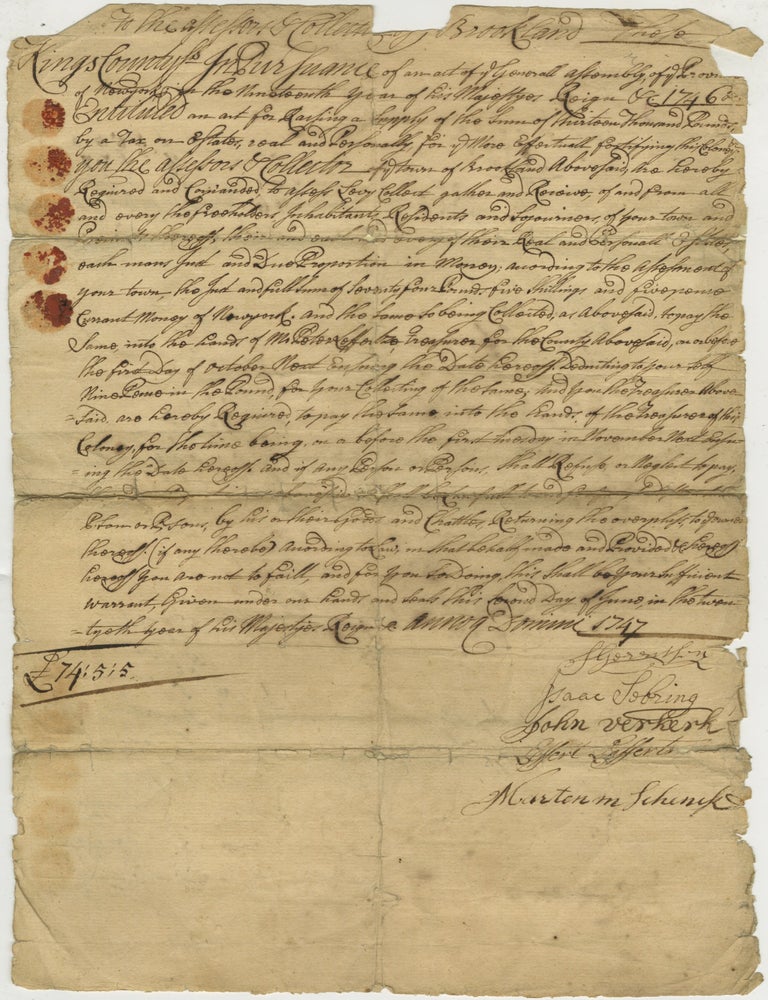 To the assessors & Collectors of Brookland These
Kings County ss In Pursuance of an act of ye General assembly of ye Prov
of Newyork in the Nineteenth Year of his Majestyes Reign &c 1746
Entituled an act for Raising a Supply of the Sum of thirteen Thousand Pounds
by a Tax on Estates, real and Personally for ye More Effectuall fortifying this Colony
you the assessors & Collector of ye town of Brookland Abovesaid, are hereby
Required and Comanded to assess Levy Collect gather and Receive, of and from all
and every the freeholders Inhabitants Residents and Sojourners, of your town and
thereof, their and each and every of their Real and Personall Estates,
each mans Just and Due Proportion in Money, according to the assessment of
your town, the Just and full Sum of Seventy four Pounds five Shillings and five pence
Currant Money of Newyork and the same so being Collected, as Abovesaid, to pay the
Same, into the hands of Mr Peter Lefferts, Treasurer for the County Abovesaid, on or before
the first Day of october Next Ensuing the Date hereof, Deducting to your self
Nine Pence in the Pound, for your Collecting of the Same, And you the Treasurer Above
=Said, are hereby Required, to pay the Same into the hands, of the Treasurer of this
Coloney, for the time being, on or before the first Tuesday in November Next Ensu=
=ing the Date hereof and if any Person or Persons, Shall Refuse, or Neglect to pay,
shall be Lawfull
Person or Persons, by his or their Goods and Chattles, Returning the overplush, to
thereof. (if any there be) According to Law, in that behalf, made and Provided & hereof
hereof you are not to faill, and for you So Doing, this Shall be Your Sufficient
warrant, Given under our hands and Seals this Second Day of June, in the twen=
=tyeth year of his Majestyes Reign &c Annoq Domini 1747
£74:5:5
Isaac Sebring
John Verkerk
Leffert Lefferts
Marten m Schenck